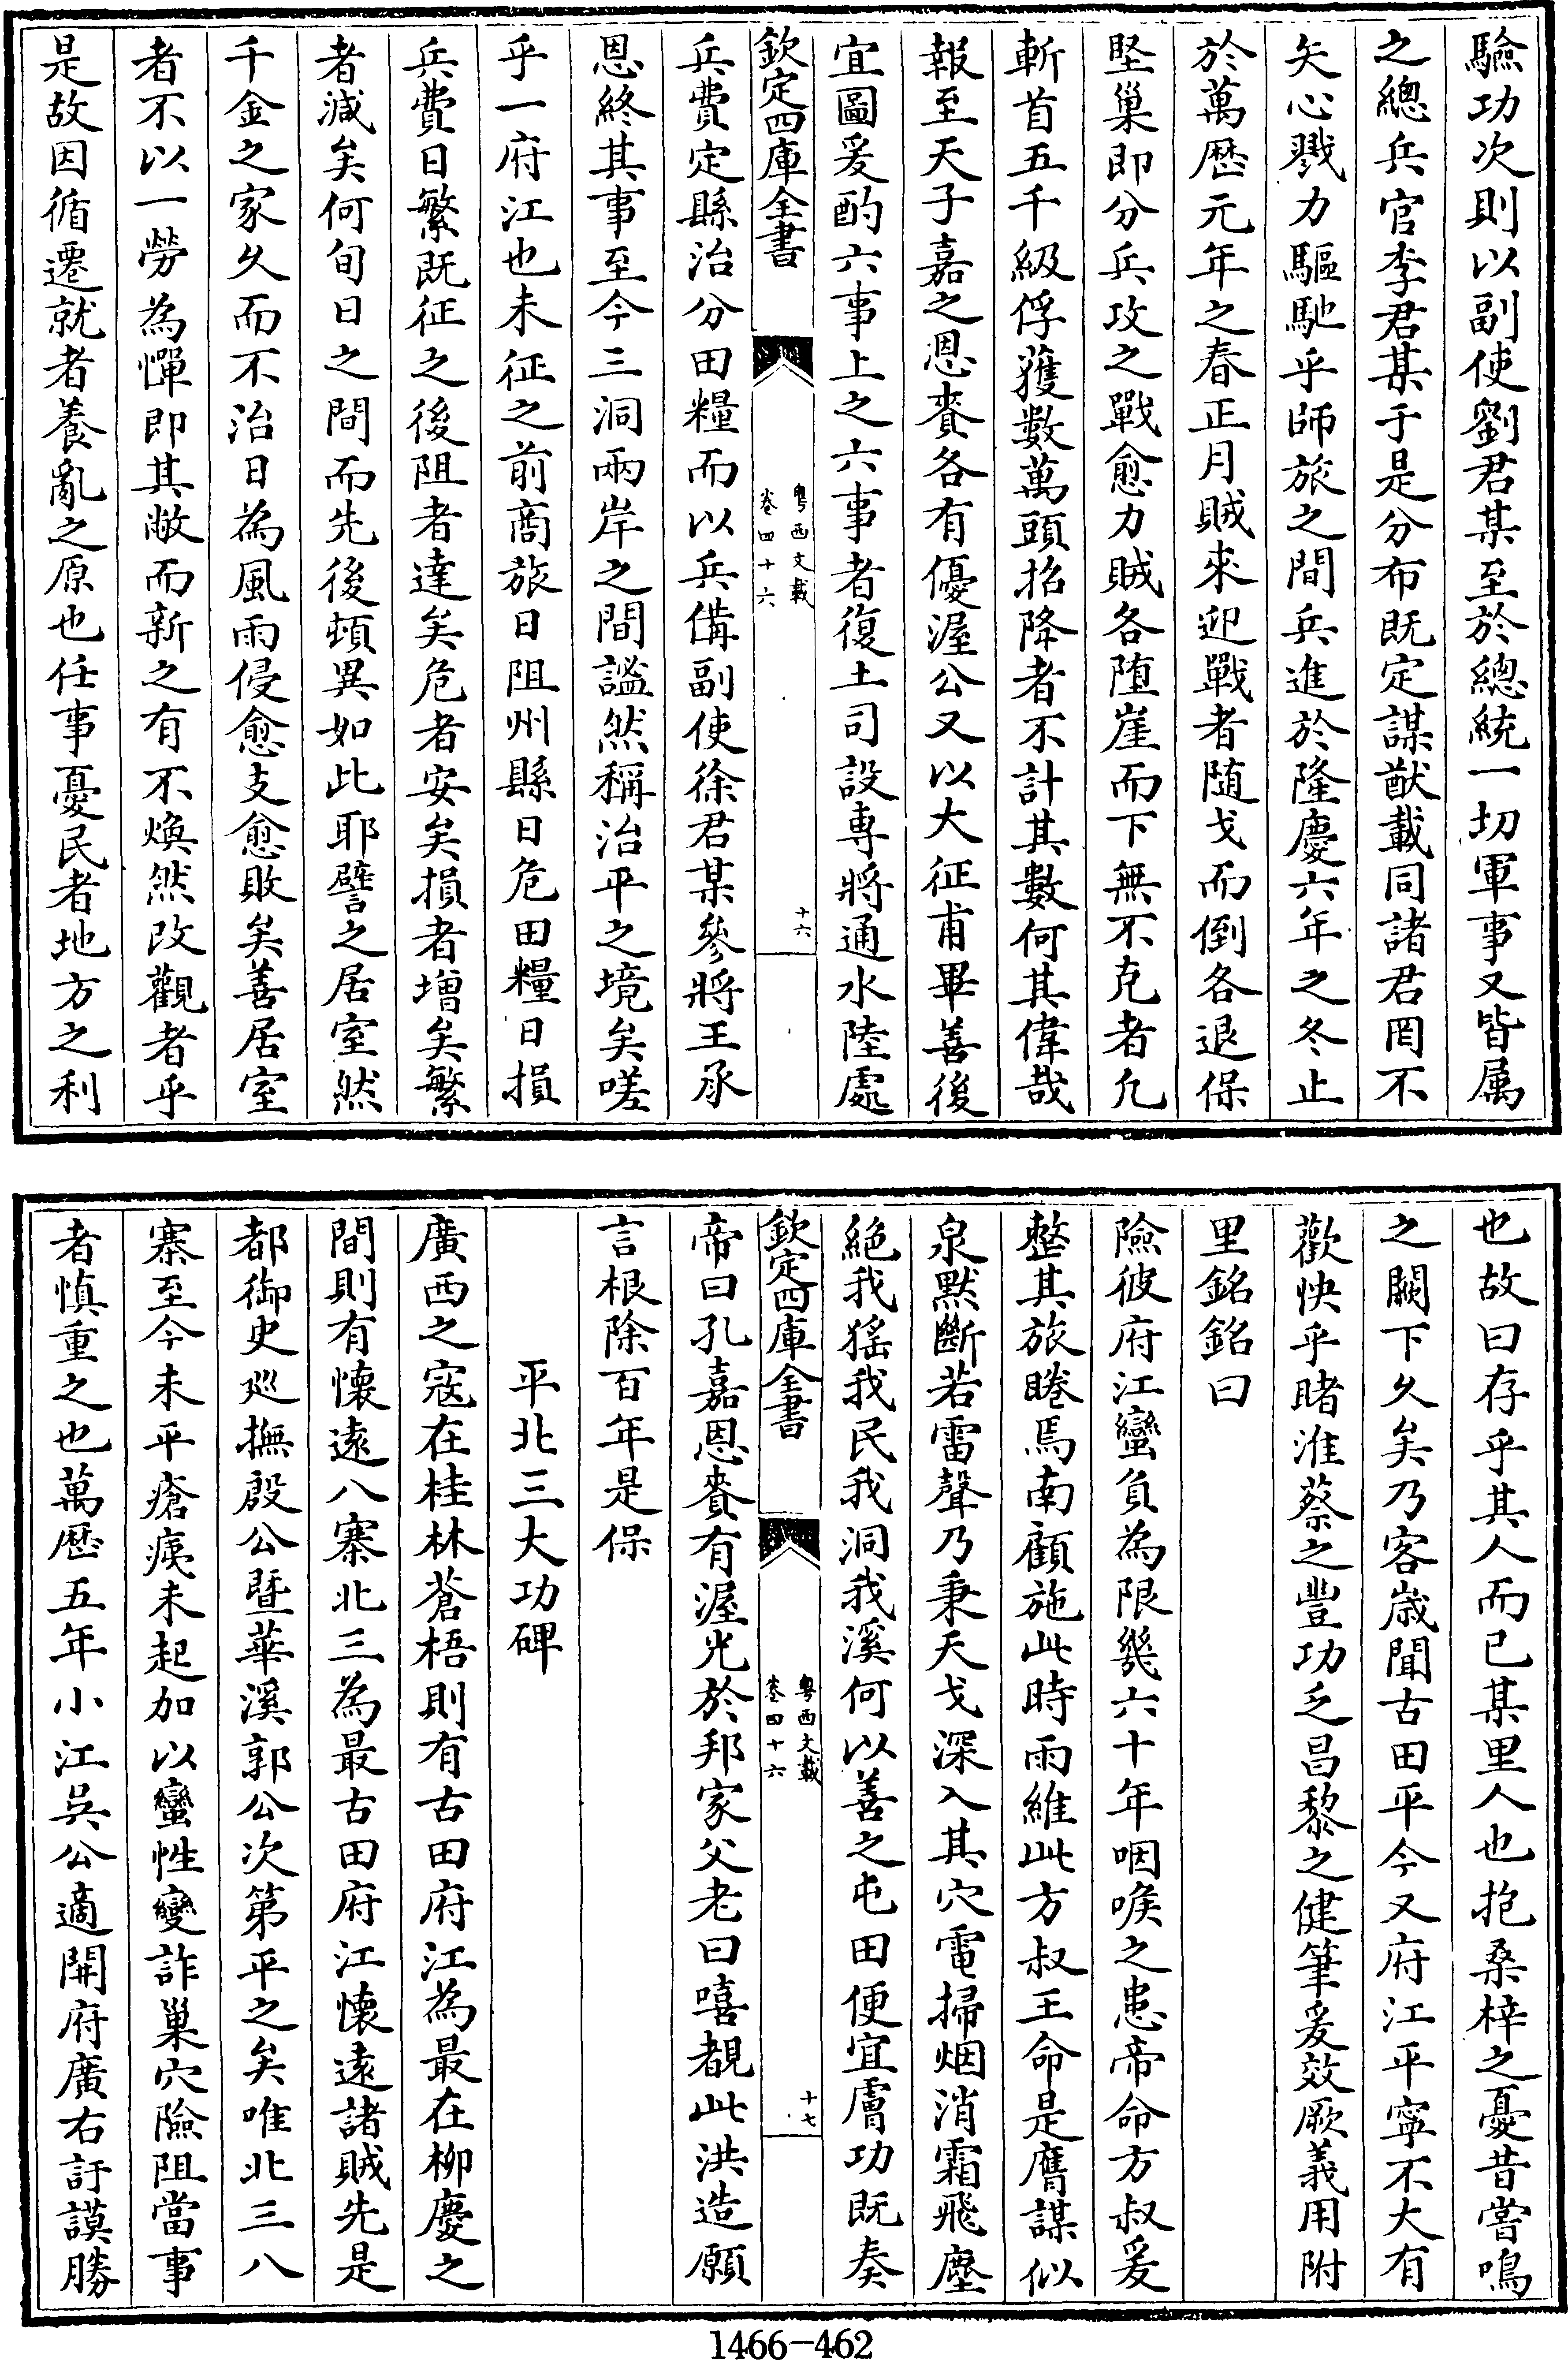 驗功次則以副使劉君某至於總統一切軍事又皆属
之總兵官李君某于是分布既定謀猷載同諸君罔不
矢心戮力驅馳乎師旅之間兵進於隆慶六年之冬止
於萬歴元年之春正月賊來迎戰者随戈而倒各退保
堅巢即分兵攻之戰愈力賊各墮崖而下無不克者凢
斬首五千級俘獲數萬頭招降者不計其數何其偉哉
報至天子嘉之恩賚各有優渥公又以大征甫畢善後
宜圖爰酌六事上之六事者復土司設專將通水陸處
欽定四庫全書
粤西文載
卷四十六
十六
兵費定縣治分田糧而以兵備副使徐君某參將王承
恩終其事至今三洞兩岸之間謐然稱治平之境矣嗟
乎一府江也未征之前商旅日阻州縣日危田糧日損
兵費日繁既征之後阻者達矣危者安矣損者增矣繁
者減矣何旬日之間而先後頓異如此耶譬之居室然
千金之家久而不治日為風雨侵愈支愈敗矣善居室
者不以一勞為憚即其敝而新之有不煥然改觀者乎
是故因循遷就者養亂之原也任事憂民者地方之利
也故曰存乎其人而已某里人也抱桑梓之憂昔嘗鳴
之闕下久矣乃客歲聞古田平今又府江平寧不大有
歡快乎睹淮蔡之豐功乏昌黎之健筆爰效厥義用附
里銘銘曰
險彼府江蠻負為限幾六十年咽喉之患帝命方叔爰
整其旅睠焉南顧施此時雨維此方叔王命是膺謀似
泉默斷若雷聲乃秉天戈深入其穴電掃烟消霜飛塵
絕我猺我民我洞我溪何以善之屯田便宜膚功既奏
欽定四庫全書
粤西文載
卷四十六
十七
帝曰孔嘉恩賚有渥光於邦家父老曰嘻覩此洪造願
言根除百年是保
平北三大功碑
廣西之寇在桂林蒼梧則有古田府江為最在柳慶之
間則有懷遠八寨北三為最古田府江懷遠諸賊先是
都御史廵撫殷公曁華溪郭公次第平之矣唯北三八
寨至今未平瘡痍未起加以蠻性變詐巢穴險阻當事
者慎重之也萬歴五年小江吳公適開府廣右訏謨勝
1466-462